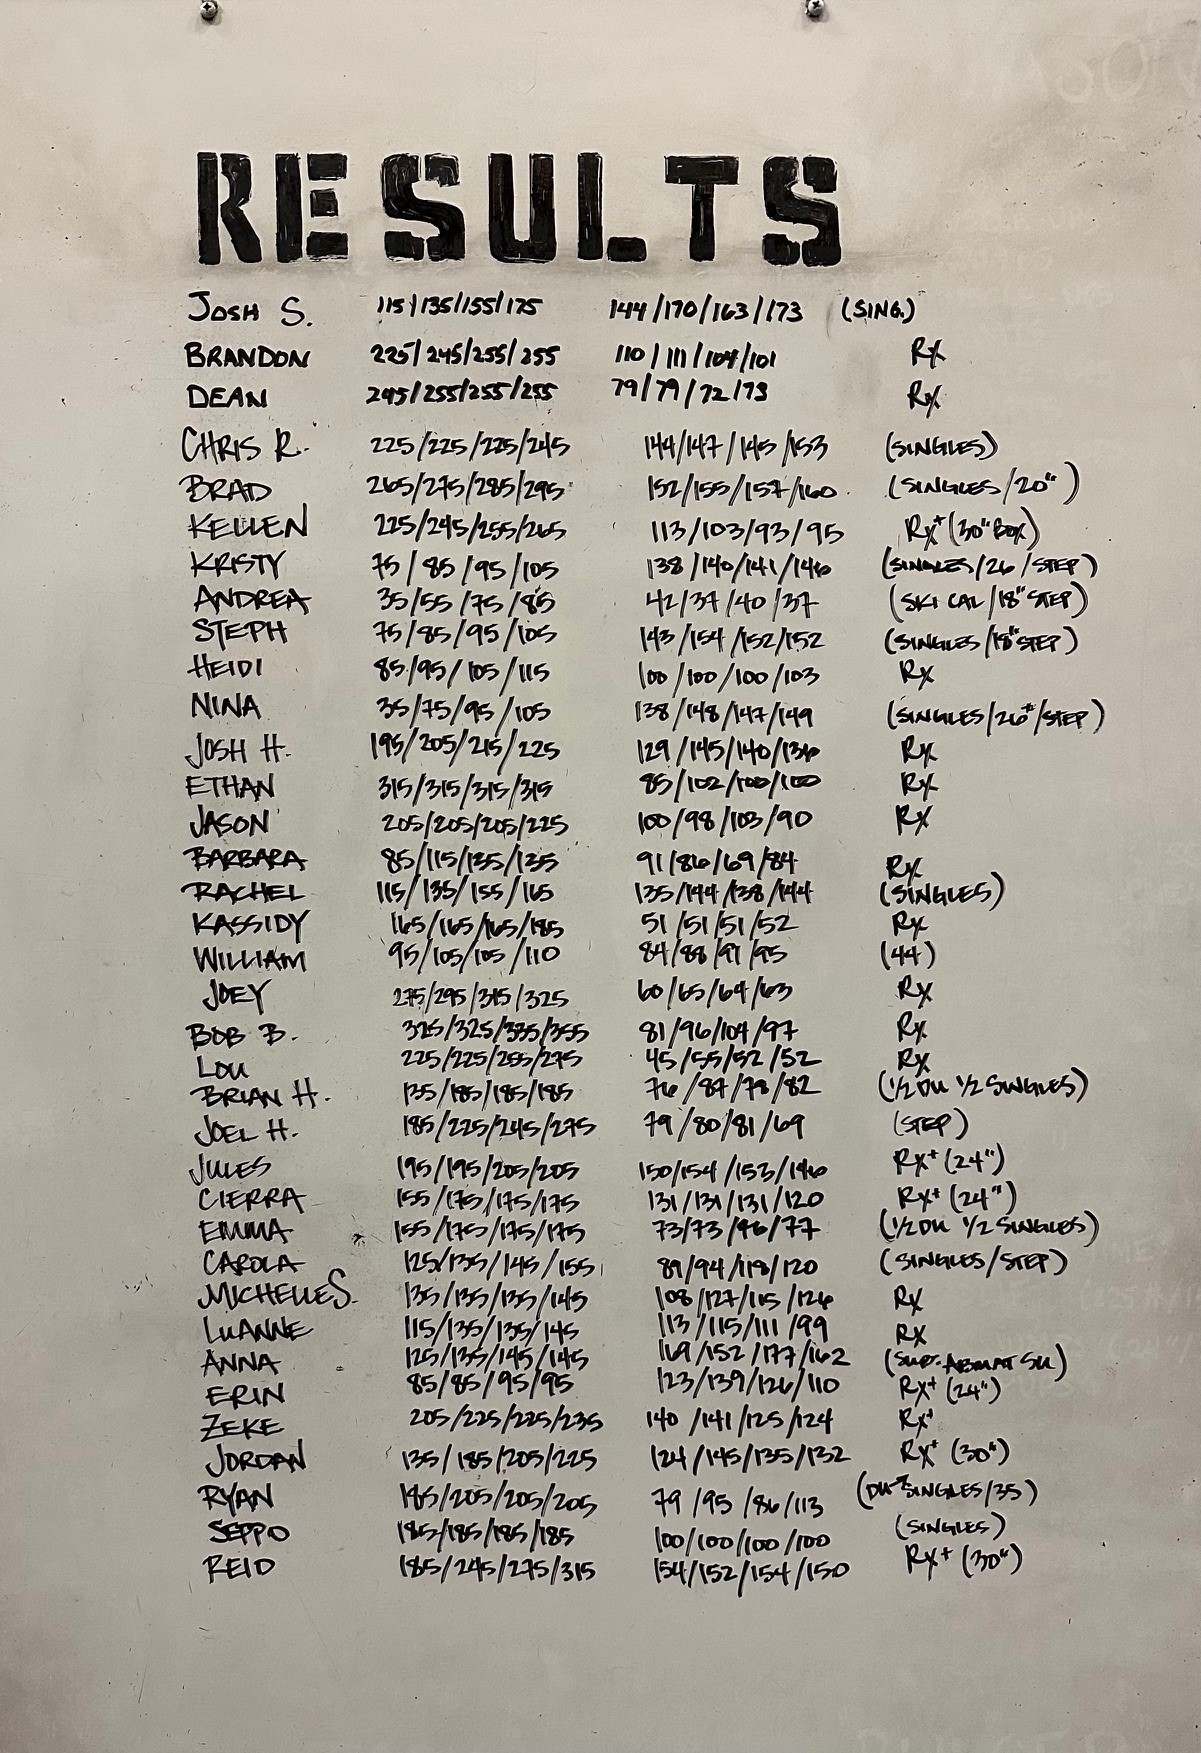 RESULTS
JOSH S. 115/135/155/175 144/170/163/173 (SING.)
BRANDON 225/245/255/255 110/111/104/101 Rx
DEAN 245/255/255/255 79/79/72/73 Rx
CHRIS R. 225/225/225/245 144/147/145/153 (SINGLES)
BRAD 265/275/285/295 152/155/157/160 (SINGLES/20")
KELLEN 225/245/255/265 113/103/93/95 Rx+ (30" BOX)
KRISTY 75/85/95/105 138/140/141/146 (SINGLES/26/STEP)
ANDREA 35/55/75/85 42/37/40/37 (SKI CAL/18" STEP)
STEPH 75/85/95/105 143/154/152/152 (SINGLES/18" STEP)
HEIDI 85/95/105/115 100/100/100/103 Rx
NINA 35/75/95/105 138/148/147/149 (SINGLES/26#/STEP)
JOSH H. 195/205/215/225 129/145/140/136 Rx
ETHAN 315/315/315/315 85/102/100/100 Rx
JASON 205/205/205/225 100/98/103/90 Rx
BARBARA 85/115/135/135 91/86/69/84 Rx
RACHEL 115/135/155/165 135/144/138/144 (SINGLES)
KASSIDY 165/165/165/185 51/51/51/52 Rx
WILLIAM 95/105/105/110 84/88/91/95 (44)
JOEY 275/295/315/325 60/65/64/63 Rx
BOB B. 325/325/335/355 81/96/104/97 Rx
LOU 225/225/255/275 45/55/52/52 Rx
BRIAN H. 135/185/185/185 76/87/78/82 (1/2 DU 1/2 SINGLES)
JOEL H. 185/225/245/275 79/80/81/69 (STEP)
JULES 195/195/205/205 150/154/153/146 Rx+ (24")
CIERRA 155/175/175/175 131/131/131/120 Rx+ (24")
EMMA 155/175/175/175 73/73/96/77 (1/2 DU 1/2 SINGLES)
CAROLA 125/135/145/155 89/94/118/120 (SINGLES/STEP)
MICHELLE S. 135/135/135/145 108/127/115/126 Rx
LUANNE 115/135/135/145 113/115/111/99 Rx
ANNA 125/135/145/145 169/152/177/162 (SUB. ABMAT SU)
ERIN 85/85/95/95 123/139/126/110 Rx+ (24")
ZEKE 205/225/225/235 140/141/125/124 Rx+
JORDAN 135/185/205/225 124/145/135/132 Rx+ (30")
RYAN 185/205/205/205 79/95/86/113 (DU→SINGLES/35)
SEPPO 185/185/185/185 100/100/100/100 (SINGLES)
REID 185/245/275/315 154/152/154/150 Rx+ (30")